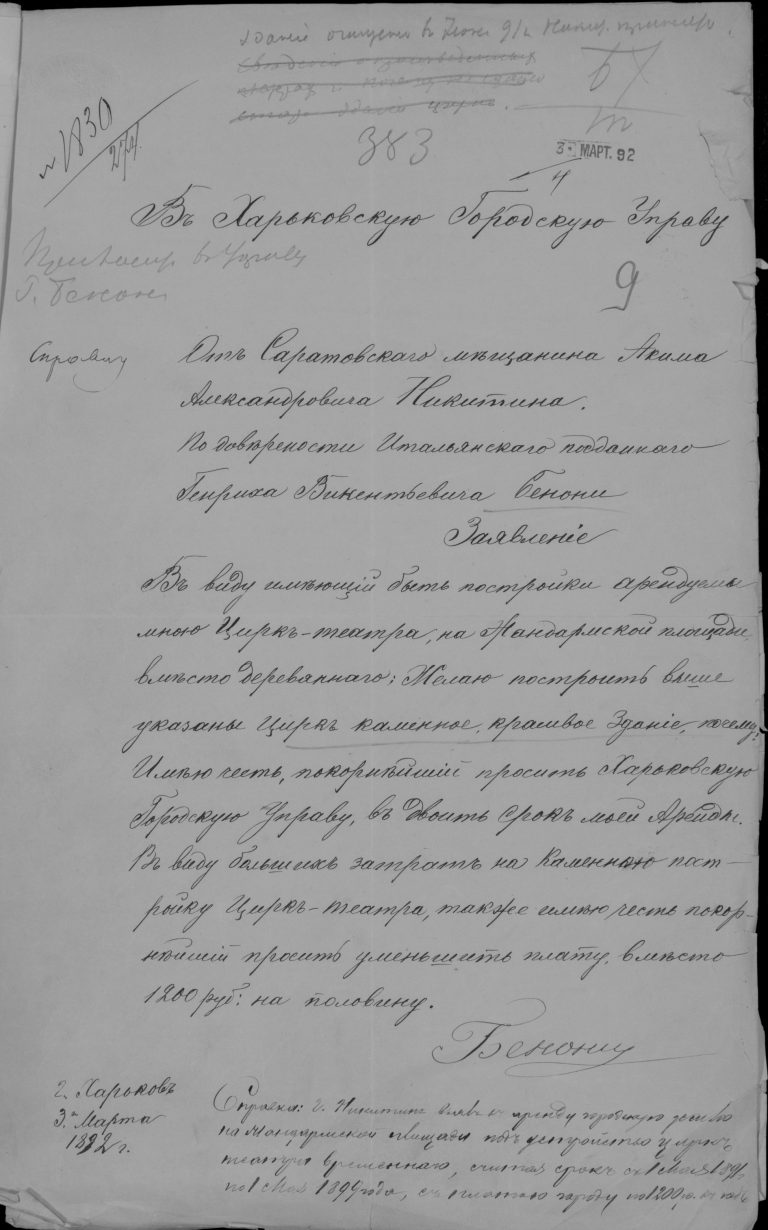 383
3 МАРТ. 92
№ 1830
274
Въ Харьковскую Городскую Управу
9
Г. Бенони
Справку
Отъ Саратовскаго мѣщанина Акима
Александровича Никитина.
По довѣрености Итальянскаго подданаго
Генриха Викентьевича Бенони
Заявленіе
Въ виду имѣющій быть постройки арендуемы
мною Циркъ-театра, на Жандармской площади,
вмѣсто деревяннаго; Желаю построить выше
указаны Циркъ каменное, красивое Зданіе, почему:
Имѣю честь, покорнѣйшій просить Харьковскую
Городскую Управу, въ двоить срокъ моей Аренды.
Въ виду большихъ затратъ на Каменною пост-
ройку Циркъ-театра, также имѣю честь покор-
нѣйшій просить уменьшить плату, вмѣсто
1200 руб: на половину.
Бенони
г. Харьковъ
3го Марта
1892 г.
Справка: г. Никитинъ взялъ въ аренду городскую землю
на Жандармской площади подъ устройство цирка
театра временнаго, считая срокъ съ 1 Мая 1891,
по 1 Мая 1894 года, съ платою городу по 1200 р. въ годъ